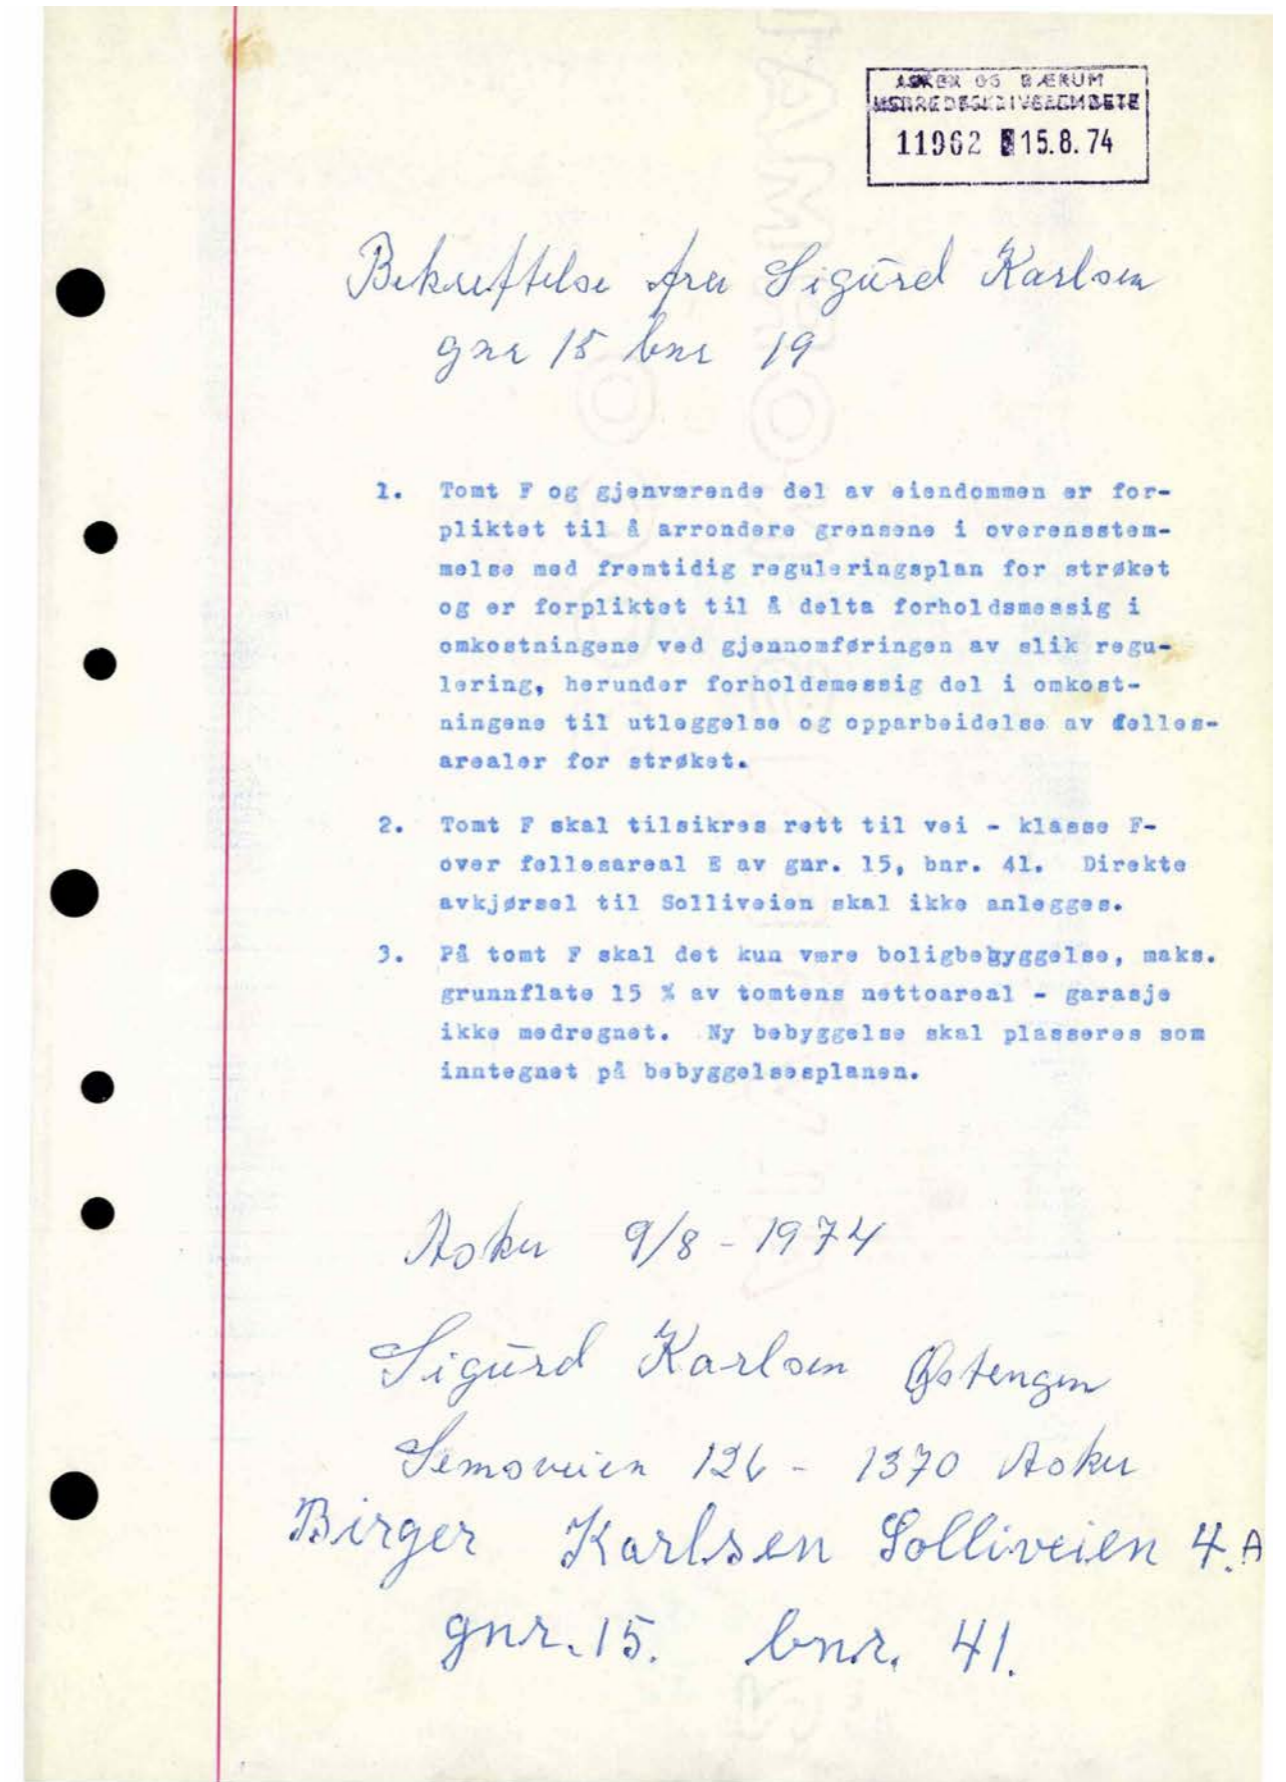 ASKER OG BÆRUM
HERREDSSKRIVEREMBETE
11962 15.8.74
Bekreftelse fra Sigurd Karlsen
gnr 15 bnr 19
1. Tomt F og gjenværende del av eiendommen er for-
pliktet til å arrondere grensene i overensstem-
melse med fremtidig reguleringsplan for strøket
og er forpliktet til å delta forholdsmessig i
omkostningene ved gjennomføringen av slik regu-
lering, herunder forholdsmessig del i omkost-
ningene til utleggelse og opparbeidelse av felles-
arealer for strøket.
2. Tomt F skal tilsikres rett til vei - klasse F-
over fellesareal E av gnr. 15, bnr. 41. Direkte
avkjørsel til Solliveien skal ikke anlegges.
3. På tomt F skal det kun være boligbebyggelse, maks.
grunnflate 15 % av tomtens nettoareal - garasje
ikke medregnet. Ny bebyggelse skal plasseres som
inntegnet på bebyggelsesplanen.
Asker 9/8-1974
Sigurd Karlsen Østengen
Semsveien 126 - 1370 Asker
Birger Karlsen Solliveien 4.A
gnr. 15. bnr. 41.